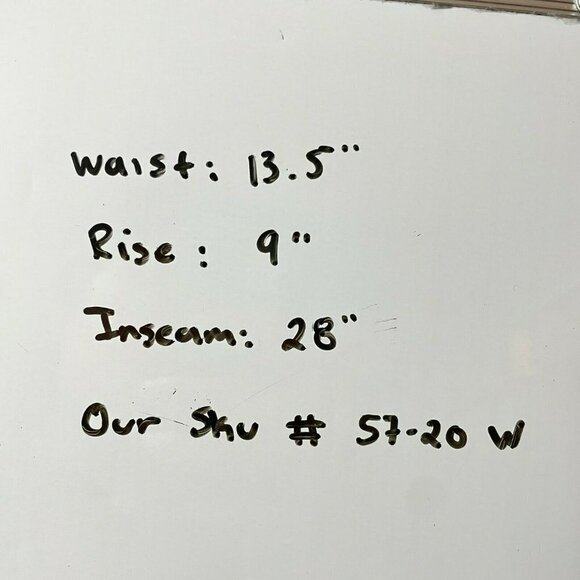 Waist: 13.5"
Rise: 9"
Inseam: 28"
Our Sku # 57-20 W